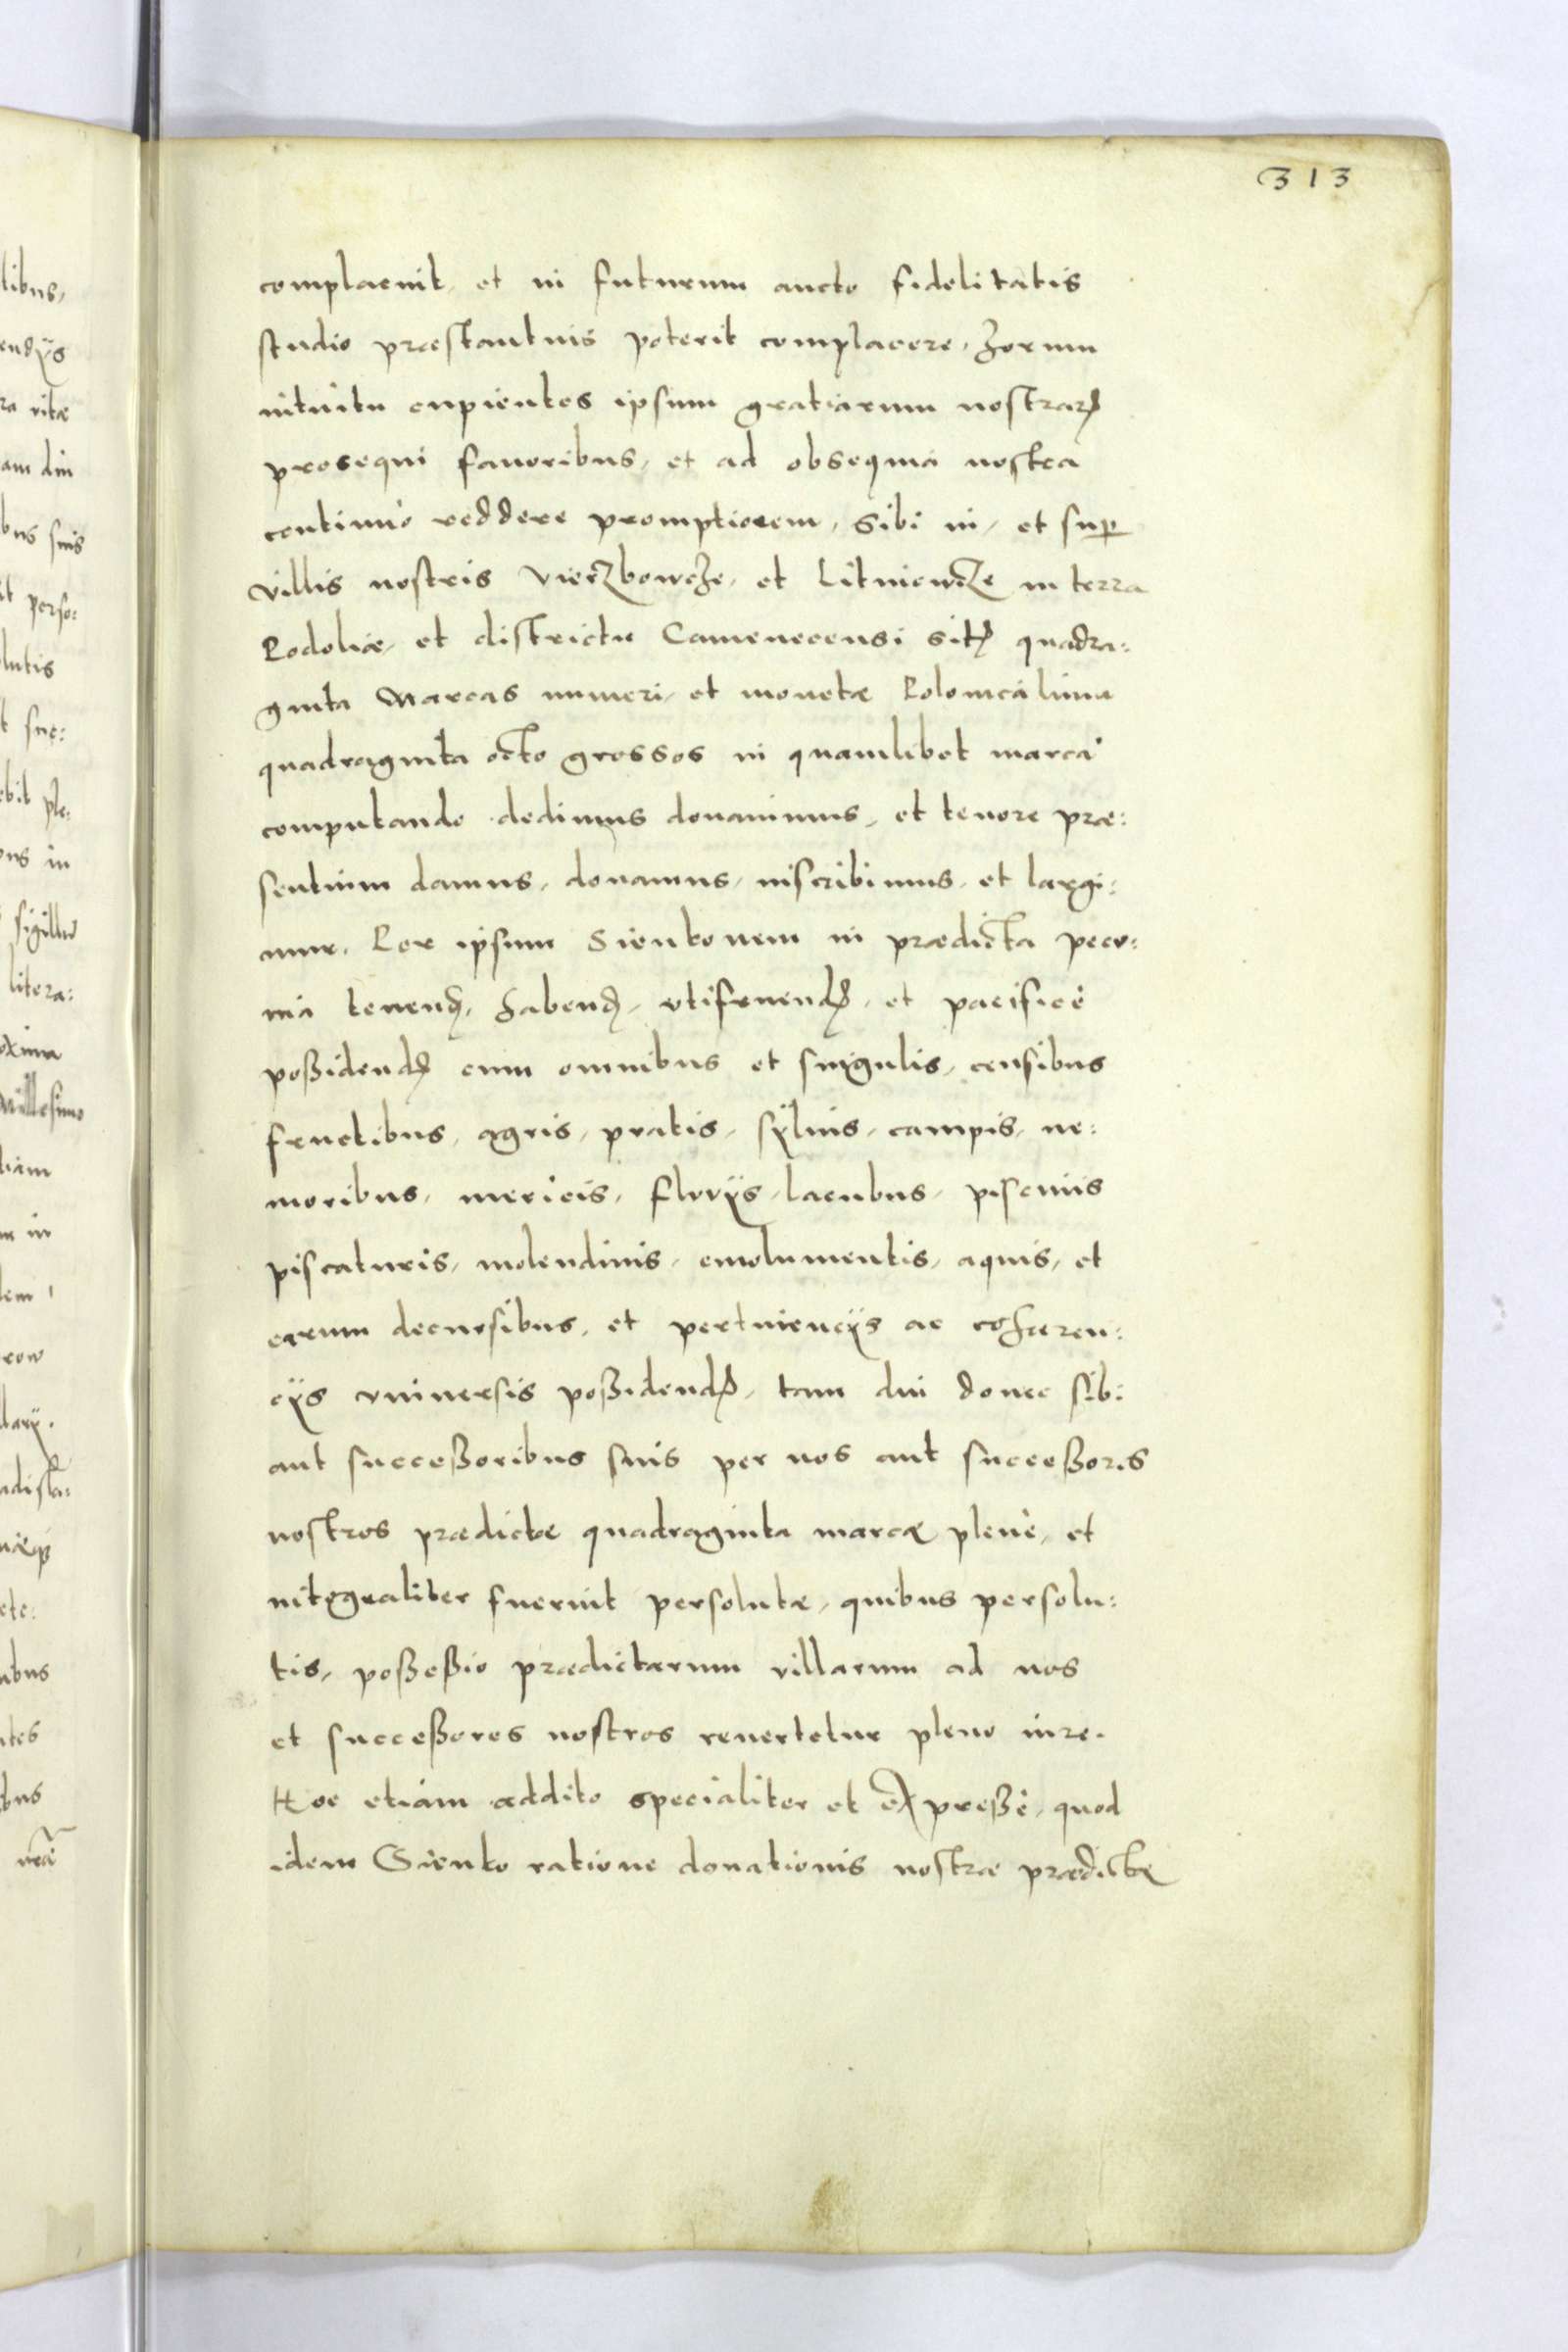 313
complacuit, et in futurum aucto fidelitatis
studio præstantius poterit complacere, horum
intuitu cupientes ipsum gratiarum nostrarꝶ
prosequi fauoribus, et ad obsequia nostra
continuò reddere promptiorem, sibi in, et suꝑ
villis nostris Vierzbowcze, et Litniewcze in terra
Podoliæ, et districtu Camenecensi sitꝭ quadra:
ginta Marcas numeri, et monetæ Polonicalium
quadraginta octo grossos in quamlibet marcā
computando dedimus donauimus, et tenore præ:
sentium damus, donamus, inscribimus, et largi:
mur. Per ipsum Sienkonem in prædicta pecu:
nia tenendꝭ, habendꝭ, vtifruendꝭ, et pacificè
poßidendꝭ cum omnibus et singulis, censibus
fructibus, agris, pratis, sÿluis, campis, ne:
moribus, mericis, fluvÿs, lacubus, piscinis
piscaturis, molendinis, emolumentis, aquis, et
earum decursibus, et pertinencÿs ac cohæren:
cÿs vniuersis poßidendꝭ, tam diu donec sibi
aut succeßoribus suis per nos aut succeßores
nostros prædictæ quadraginta marcæ plenè, et
integraliter fuerint persolutæ, quibus persolu:
tis, poßeßio prædictarum villarum ad nos
et succeßores nostros reuertetur pleno iure.
Hoc etiam addito specialiter et expreßè, quod
idem Sienko ratione donationis nostræ prædictæ